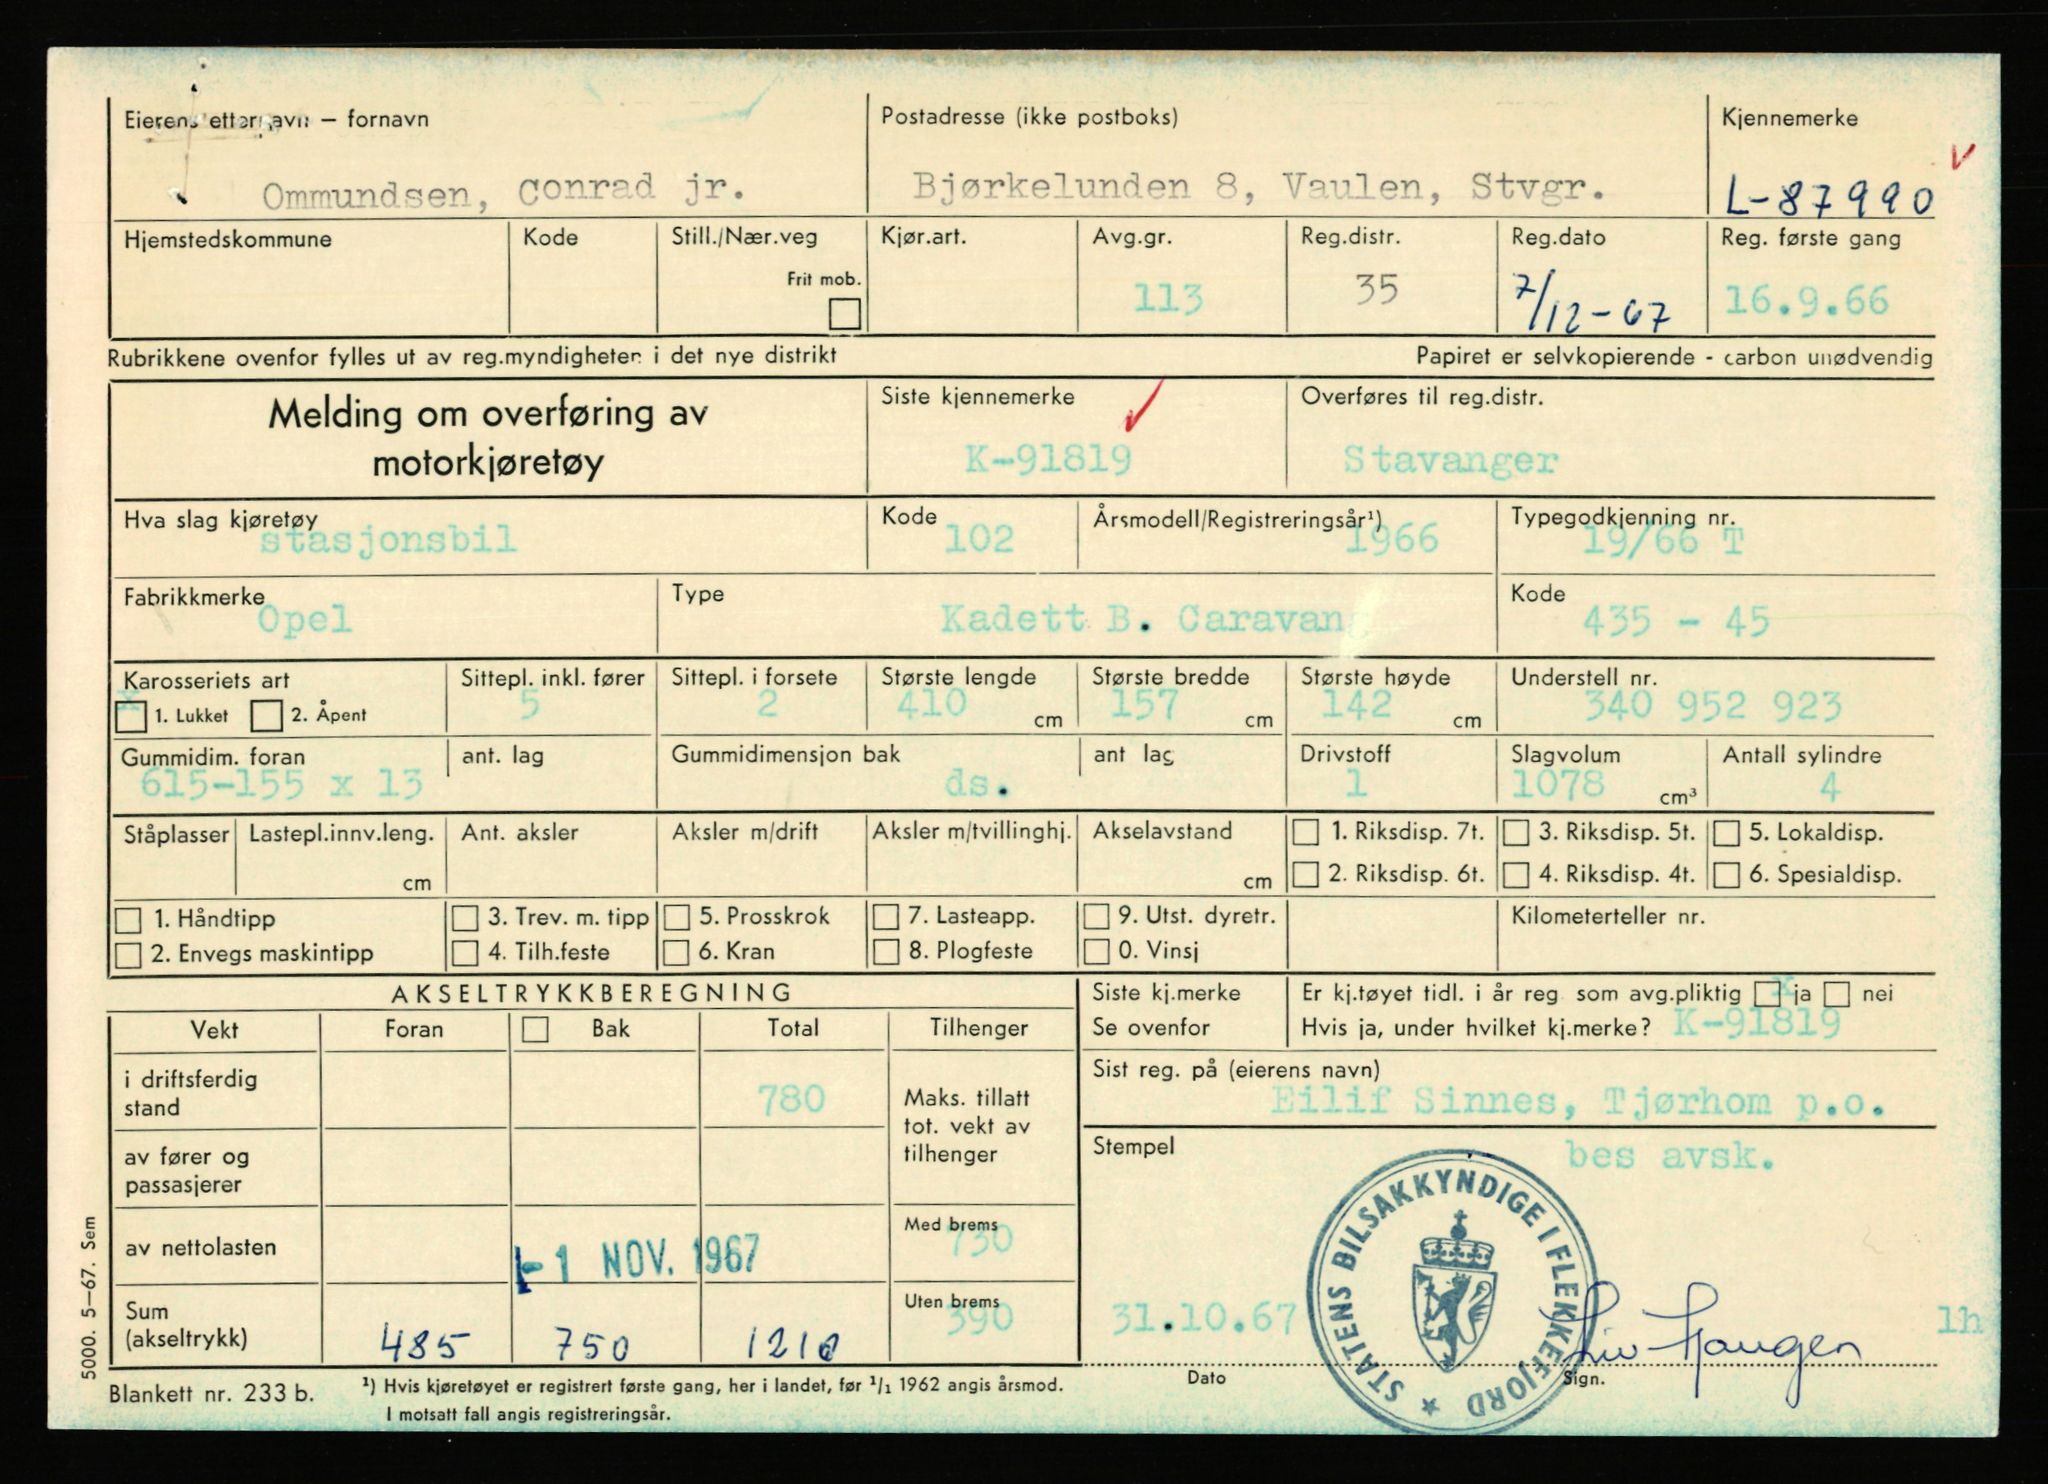 Eierens etternavn – fornavn
Postadresse (ikke postboks)
Kjennemerke
Ommundsen, Conrad jr.
Bjørkelunden 8, Vaulen, Stvgr.
L-87990
Hjemstedskommune
Kode
Still./Nær.veg
Frit mob.
Kjør.art.
Avg.gr.
113
Reg.distr.
35
Reg.dato
7/12-67
Reg. første gang
16.9.66
Rubrikkene ovenfor fylles ut av reg.myndigheten i det nye distrikt
Papiret er selvkopierende - carbon unødvendig
Melding om overføring av
motorkjøretøy
Siste kjennemerke
K-91819
Overføres til reg.distr.
Stavanger
Hva slag kjøretøy
stasjonsbil
Kode
102
Årsmodell/Registreringsår¹)
1966
Typegodkjenning nr.
19/66 T
Fabrikkmerke
Opel
Type
Kadett B. Caravan
Kode
435 - 45
Karosseriets art
x
1. Lukket 2. Åpent
Sittepl. inkl. fører
5
Sittepl. i forsete
2
Største lengde
410 cm
Største bredde
157 cm
Største høyde
142 cm
Understell nr.
340 952 923
Gummidim. foran
615-155 x 13
ant. lag
Gummidimensjon bak
ds.
ant lag
Drivstoff
1
Slagvolum
1078 cm³
Antall sylindre
4
Ståplasser
Lastepl.innv.leng.
cm
Ant. aksler
Aksler m/drift
Aksler m/tvillinghj.
Akselavstand
cm
1. Riksdisp. 7t.
3. Riksdisp. 5t.
5. Lokaldisp.
2. Riksdisp. 6t.
4. Riksdisp. 4t.
6. Spesialdisp.
1. Håndtipp
3. Trev. m. tipp
5. Prosskrok
7. Lasteapp.
9. Utst. dyretr.
Kilometerteller nr.
2. Envegs maskintipp
4. Tilh.feste
6. Kran
8. Plogfeste
0. Vinsj
AKSELTRYKKBEREGNING
Siste kj.merke
Se ovenfor
Er kj.tøyet tidl. i år reg som avg.pliktig x ja nei
Hvis ja, under hvilket kj.merke? K-91819
Vekt
Foran
Bak
Total
Tilhenger
i driftsferdig
stand
780
Maks. tillatt
tot. vekt av
tilhenger
Sist reg. på (eierens navn)
Eilif Sinnes, Tjørhom p.o.
av fører og
passasjerer
Stempel
bes avsk.
av nettolasten
-1 NOV. 1967
Med brems
730
Sum
(akseltrykk)
485
750
1210
Uten brems
390
31.10.67
STATENS BILSAKKYNDIGE I FLEKKEFJORD
Liv Haugen
lh
Dato
Sign.
5000. 5–67. Sem
Blankett nr. 233 b.
¹) Hvis kjøretøyet er registrert første gang, her i landet, før ¹/₁ 1962 angis årsmod.
I motsatt fall angis registreringsår.